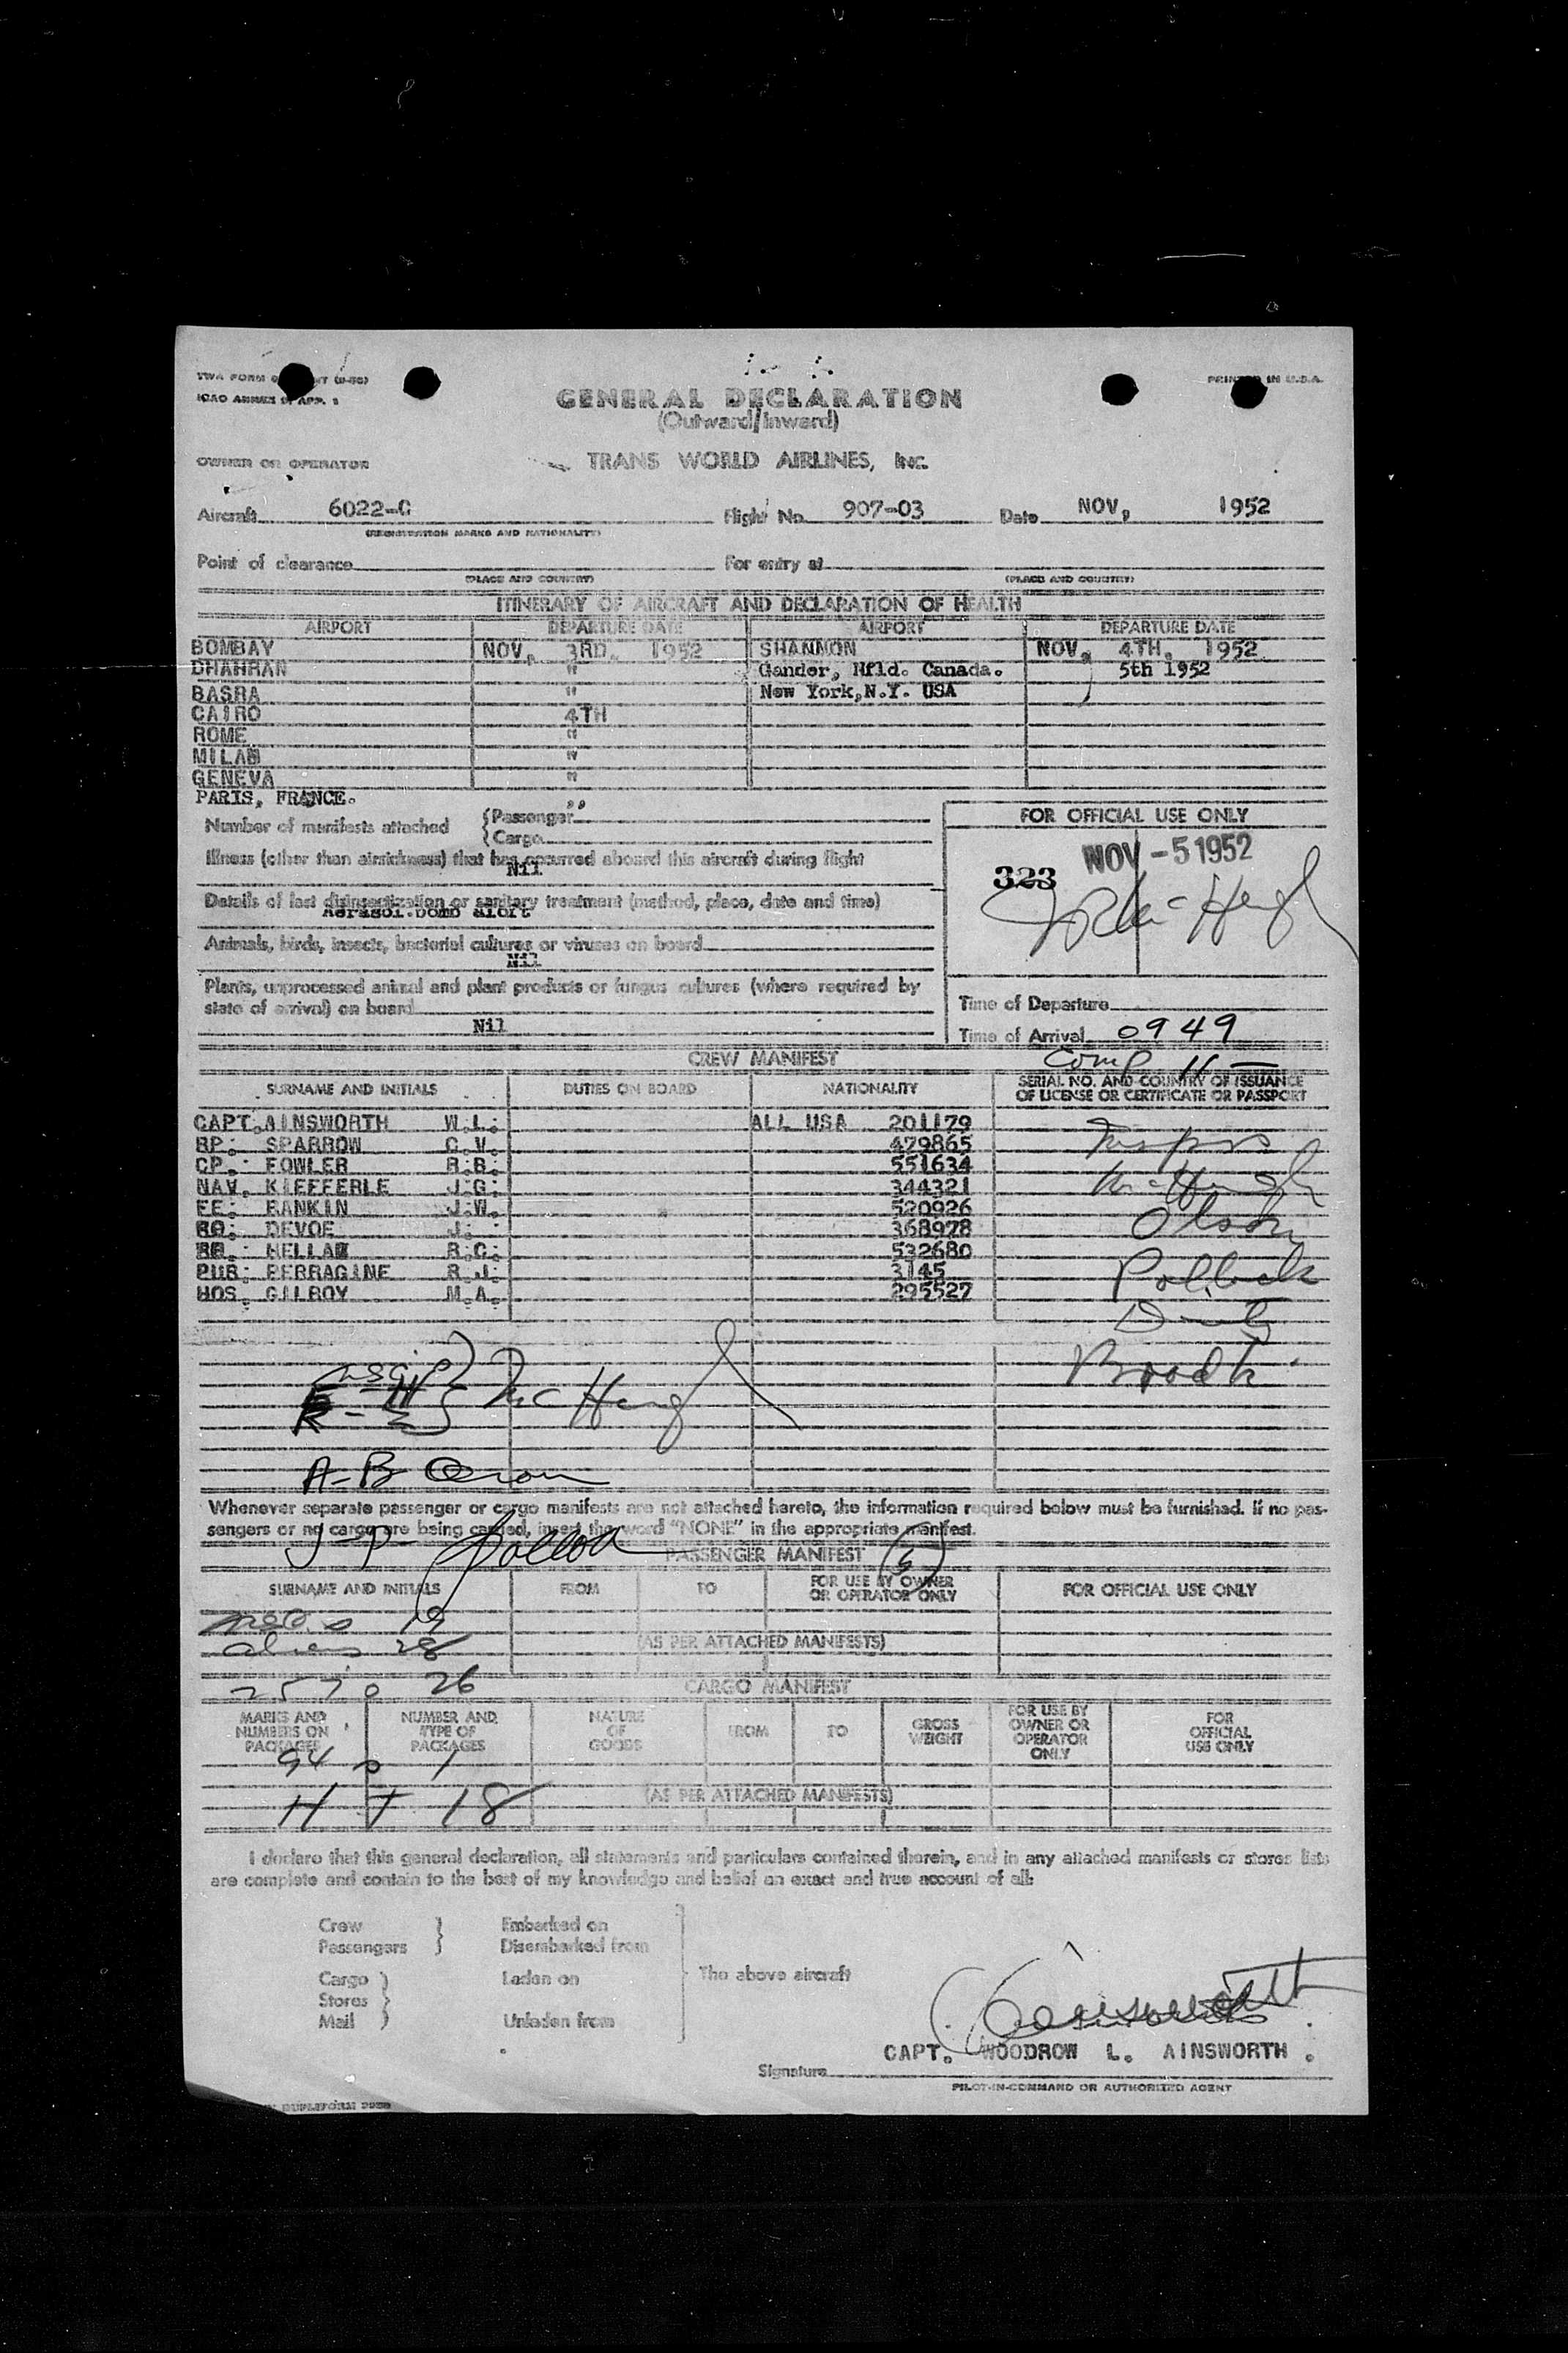 TWA FORM
ICAO ANNEX 9 APP. 1
PRINTED IN U.S.A.
GENERAL DECLARATION
(Outward/Inward)
OWNER OR OPERATOR TRANS WORLD AIRLINES, INC.
Aircraft 6022-C Flight No. 907-03 Date NOV, 1952
(REGISTRATION MARKS AND NATIONALITY)
Point of clearance For entry at
(PLACE AND COUNTRY) (PLACE AND COUNTRY)
ITINERARY OF AIRCRAFT AND DECLARATION OF HEALTH
AIRPORT DEPARTURE DATE AIRPORT DEPARTURE DATE
BOMBAY NOV, 3RD, 1952 SHANNON NOV, 4TH, 1952
DHAHRAN " Gander, Nfld. Canada. 5th 1952
BASRA " New York,N.Y. USA
CAIRO 4TH
ROME "
MILAN "
GENEVA "
PARIS, FRANCE. ,,
Number of manifests attached {Passenger
{Cargo
FOR OFFICIAL USE ONLY
NOV -5 1952
323
Illness (other than airsickness) that has occurred aboard this aircraft during flight
Nil
Details of last disinsectization or sanitary treatment (method, place, date and time)
Aerasol.bomb aloft
Animals, birds, insects, bacterial cultures or viruses on board
Nil
Plants, unprocessed animal and plant products or fungus cultures (where required by
state of arrival) on board
Nil
Time of Departure
Time of Arrival 0949
CREW MANIFEST
Comp 11
SURNAME AND INITIALS DUTIES ON BOARD NATIONALITY SERIAL NO. AND COUNTRY OF ISSUANCE
OF LICENSE OR CERTIFICATE OR PASSPORT
CAPT. AINSWORTH W.L. ALL USA 201179
RP: SPARROW C.V. 479865
CP.: FOWLER R.B. 551634
NAV. KIEFFERLE J.G. 344321
FE: RANKIN J.W. 520926
RO: DEVOE J. 368978
HELLAM R.C. 532680
PUR: PERRAGINE R.J. 3145
HOS. GILROY M.A. 295527
McHugh
Olson
Pollock
McHugh
A-B
Whenever separate passenger or cargo manifests are not attached hereto, the information required below must be furnished. If no pas-
sengers or no cargo are being carried, insert the word "NONE" in the appropriate manifest.
PASSENGER MANIFEST
SURNAME AND INITIALS FROM TO FOR USE BY OWNER
OR OPERATOR ONLY FOR OFFICIAL USE ONLY
19
aliens 28
(AS PER ATTACHED MANIFESTS)
26
CARGO MANIFEST
MARKS AND
NUMBERS ON
PACKAGES NUMBER AND
TYPE OF
PACKAGES NATURE
OF
GOODS FROM TO GROSS
WEIGHT FOR USE BY
OWNER OR
OPERATOR
ONLY FOR
OFFICIAL
USE ONLY
94 1
H T 18
(AS PER ATTACHED MANIFESTS)
I declare that this general declaration, all statements and particulars contained therein, and in any attached manifests or stores lists
are complete and contain to the best of my knowledge and belief an exact and true account of all:
Crew } Embarked on
Passengers } Disembarked from
Cargo } Laden on The above aircraft
Stores }
Mail } Unladen from
CAPT. WOODROW L. AINSWORTH .
Signature
PILOT-IN-COMMAND OR AUTHORIZED AGENT